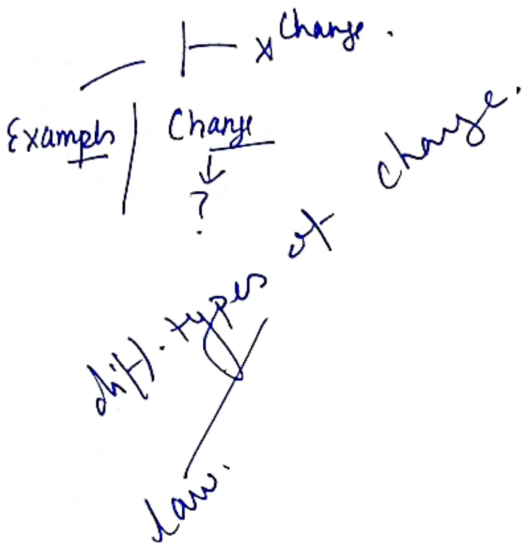 x Change.
Examples | Change
↓
?
diff. types of change.
law.